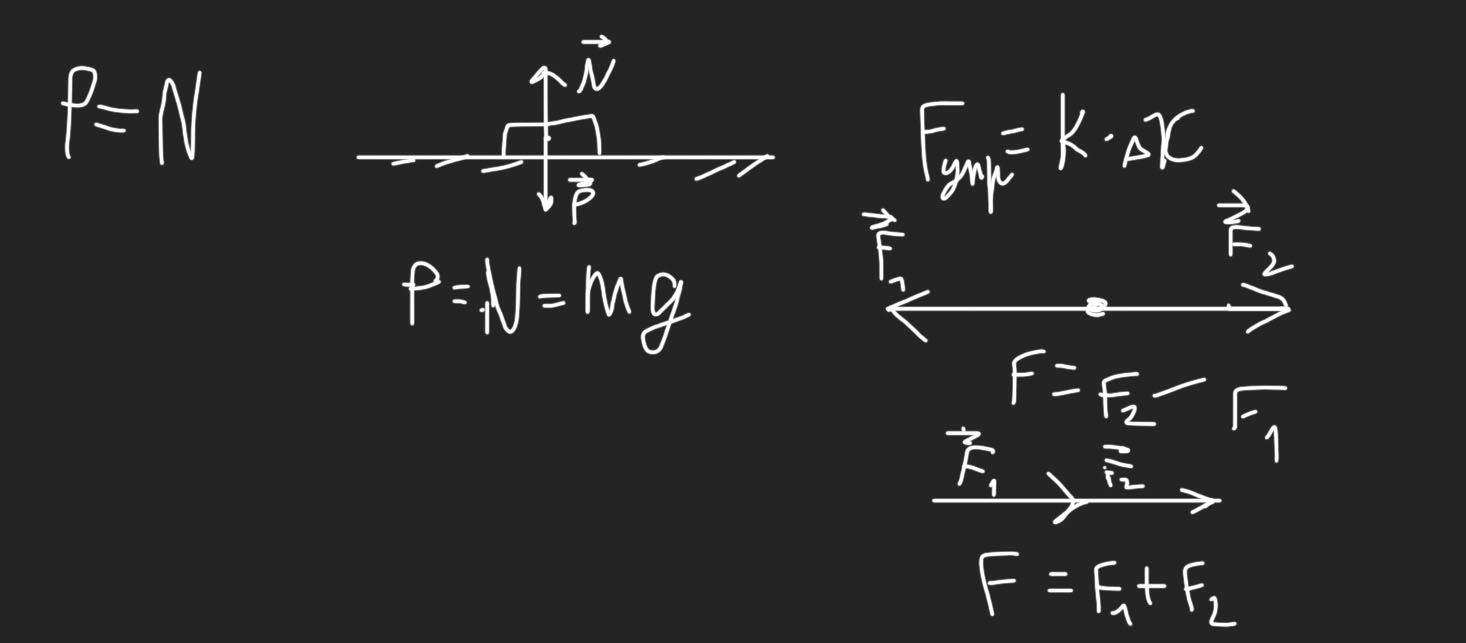 P = N
N⃗
P⃗
P = N = mg
Fупр = k · Δx
F⃗₁
F⃗₂
F = F₂ − F₁
F⃗₁
F⃗₂
F = F₁ + F₂